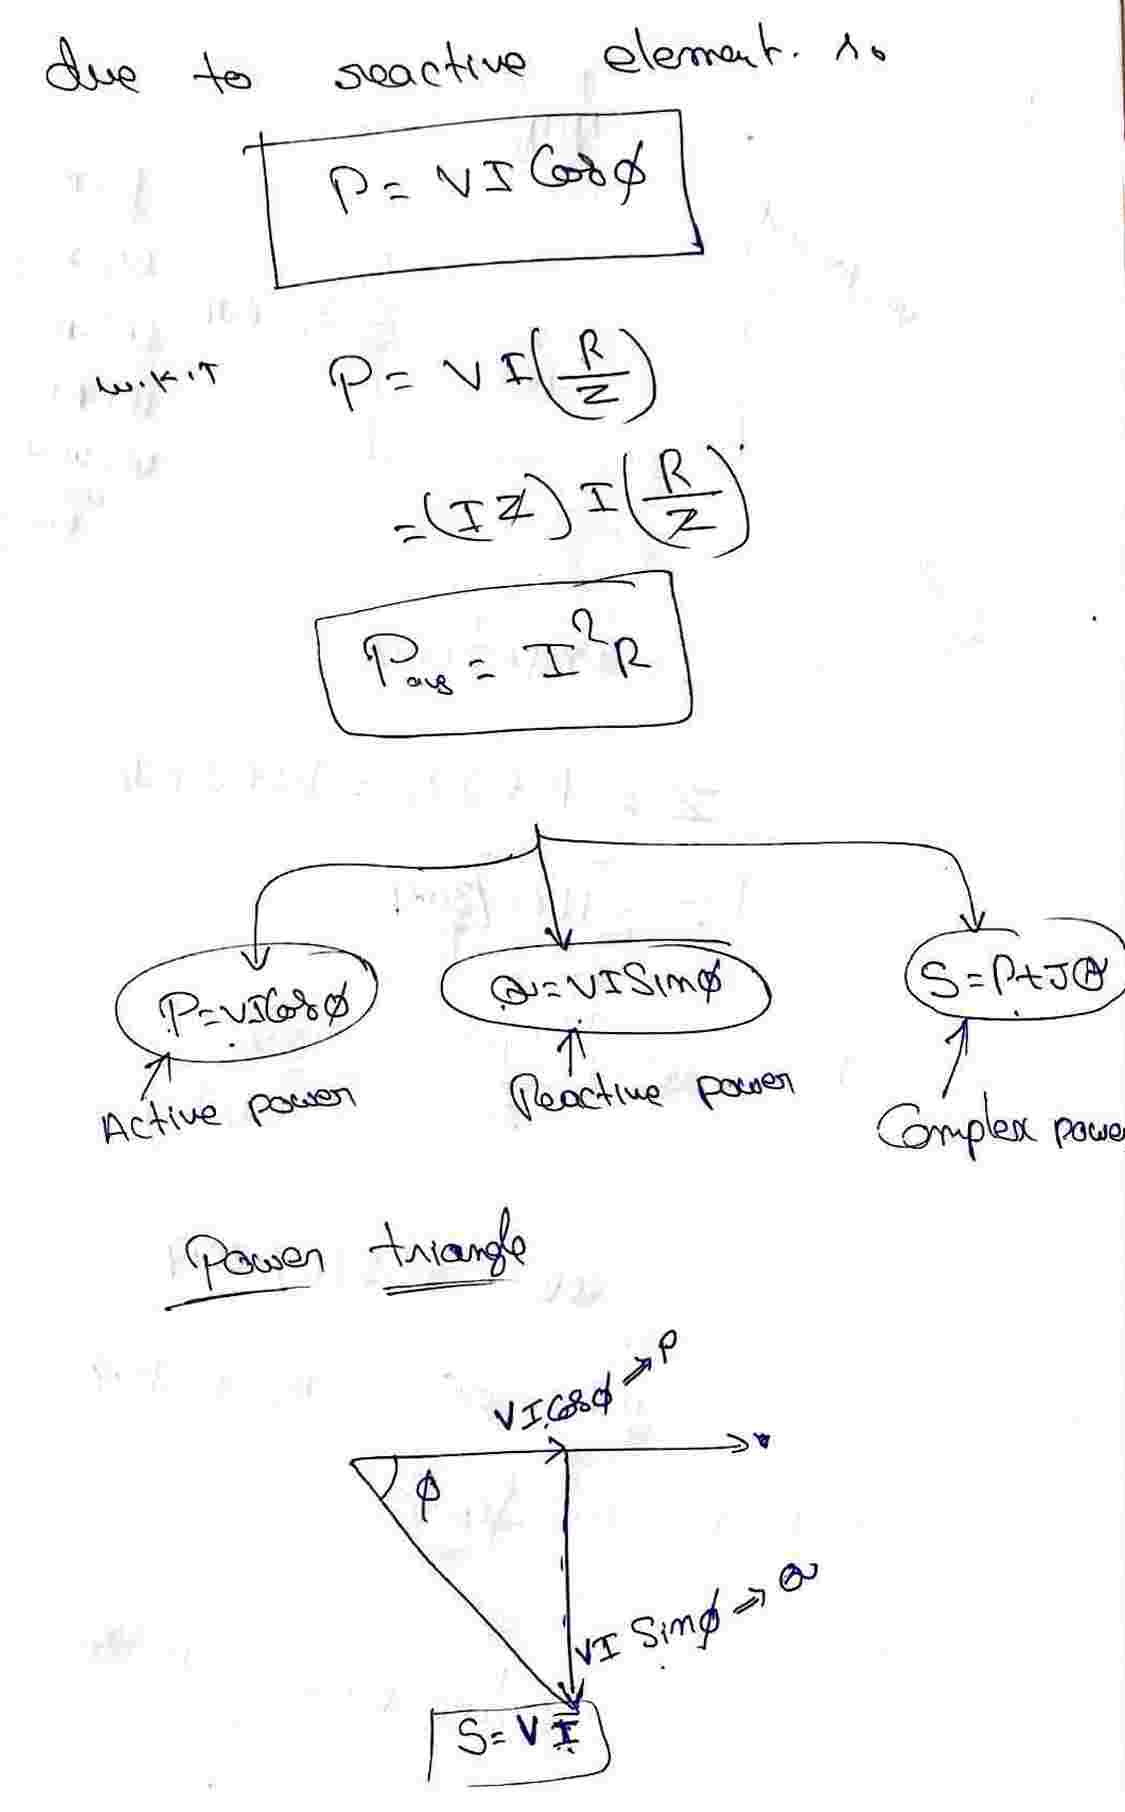 due to reactive element. so
P = VI Cosϕ
W.K.T P = VI(R/Z)
= (IZ) I(R/Z)
Pavg = I²R
P=VICosϕ Q=VISinϕ S=P+JQ
Active power Reactive power Complex power
Power triangle
VICosϕ ⇒ P
ϕ
VI Sinϕ ⇒ Q
S= VI